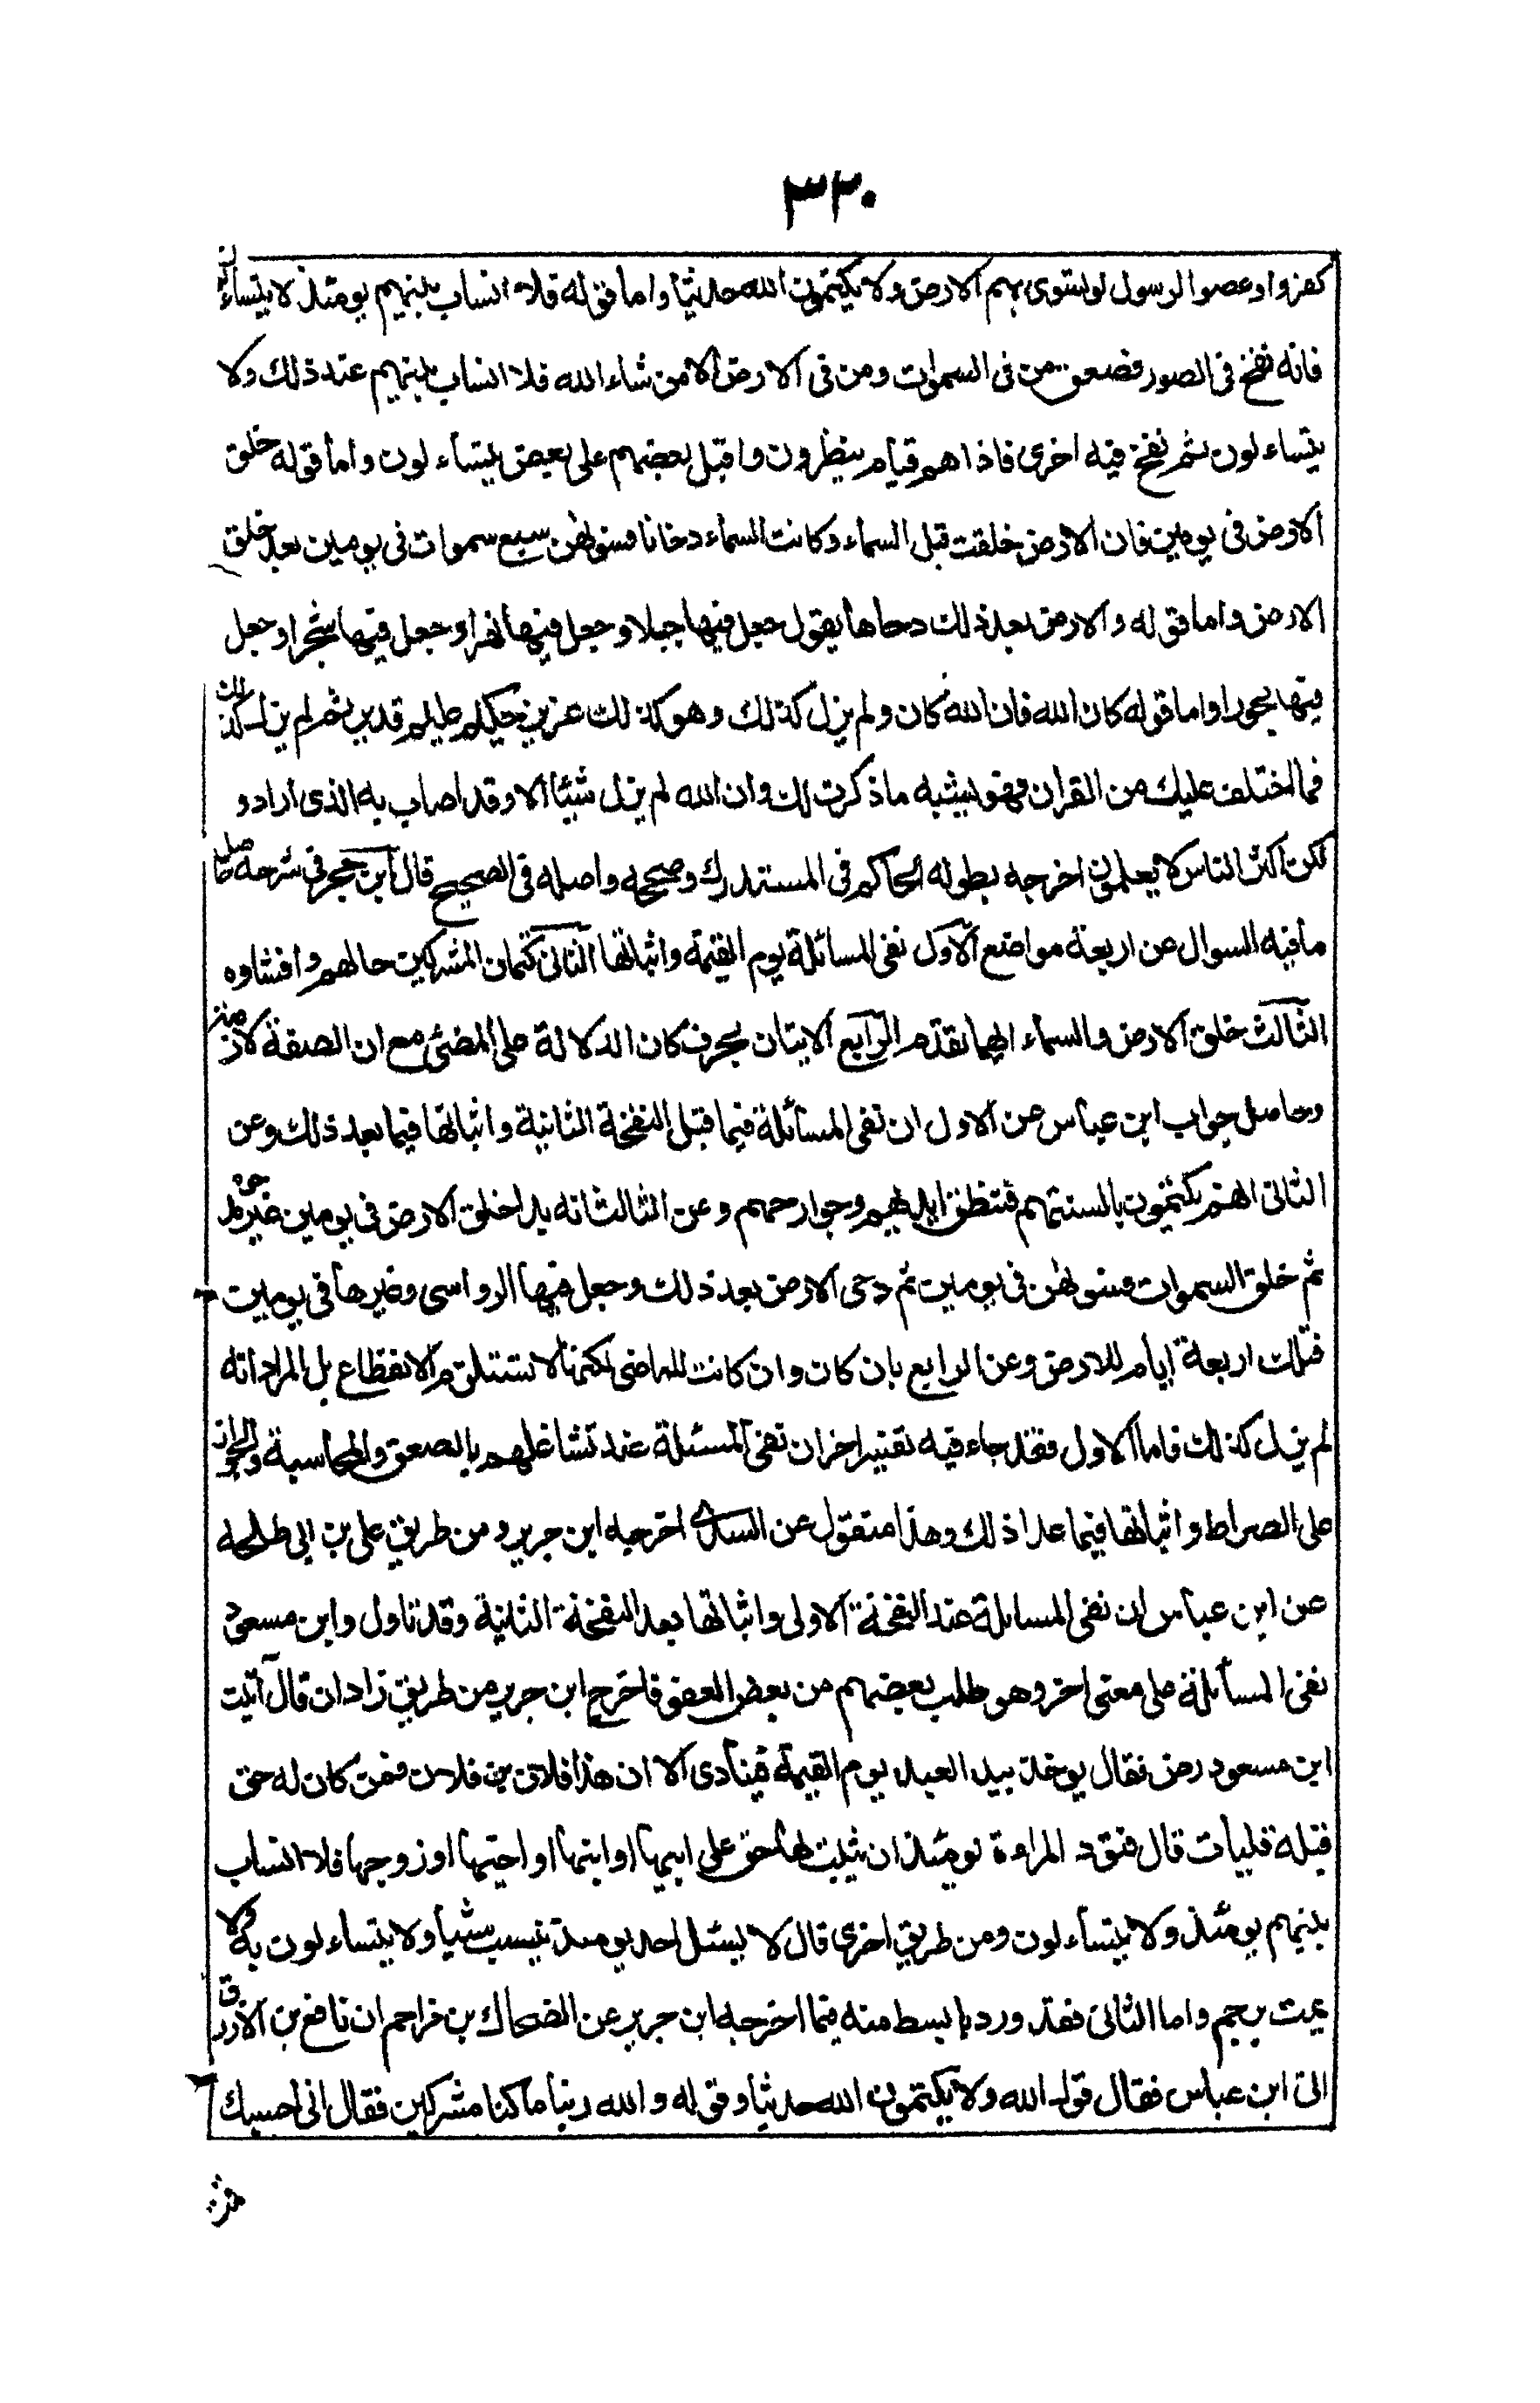 ٣٢٠
كفروا وعصوا الرسول لو تسوى بهم الارض ولا يكتمون الله حديثا واما قوله فلا انساب بينهم يومئذ لا يتساءلون
فانه نفخ فى الصور فصعق من فى السموات ومن فى الارض الا من شاء الله فلا انساب بينهم عند ذلك ولا
يتساءلون ثم نفخ فيه اخرى فاذا هم قيام ينظرون واقبل بعضهم على بعض يتساءلون واما قوله خلق
الارض فى يومين فان الارض خلقت قبل السماء وكانت السماء دخانا فسوٰهن سبع سموات فى يومين بعد خلق
الارض واما قوله والارض بعد ذلك دحاها يقول جعل فيها جبلا وجعل فيها نهرا وجعل فيها شجرا وجعل
فيها بحورا واما قوله كان الله فان الله كان ولم يزل كذلك وهو كذلك عزيز حكيم عليم قدير ثم لم يزل كذلك
فما اختلف عليك من القران فهو يشبه ما ذكرت لك وان الله لم ينزل شيئا الا وقد اصاب به الذى اراد و
لكن اكثر الناس لا يعلمون اخرجه بطوله الحاكم فى المستدرك وصححه واصله فى الصحيح قال ابن حجر فى شرحه حاصل
ما فيه السوال عن اربعة مواضع الاول نفى المسائلة يوم القيمة واثباتها الثانى كتمان المشركين حالهم وافشاوه
الثالث خلق الارض والسماء ايهما تقدم الرابع الاتيان بحرف كان الدلالة على المضى مع ان الصفة لازمة
وحاصل جواب ابن عباس عن الاول ان نفى المسائلة فيما قبل النفخة الثانية واثباتها فيما بعد ذلك وعن
الثانى انهم يكتمون بالسنتهم فتنطق ايديهم وجوارحهم وعن الثالث انه بدا خلق الارض فى يومين غير مدحوة
ثم خلق السموات فسوٰهن فى يومين ثم دحى الارض بعد ذلك وجعل فيها الرواسى وغيرها فى يومين
فتلك اربعة ايام للارض وعن الرابع بان كان وان كانت للماضى لكنها لا تستلزم الانقطاع بل المراد انه
لم يزل كذلك فاما الاول فقد جاء فيه تفسير اخر ان نفى المسئلة عند تشاغلهم بالصعق والمحاسبة والجواز
على الصراط واثباتها فيما عدا ذلك وهذا منقول عن السدى اخرجه ابن جرير ومن طريق على بن ابى طلحة
عن ابن عباس ان نفى المسائلة عند النفخة الاولى واثباتها بعد النفخة الثانية وقد تاول وابن مسعود
نفى المسائلة على معنى اخر وهو طلب بعضهم من بعض العفو فاخرج ابن جرير من طريق زادان قال آتيت
ابن مسعود رض فقال يوخذ بيد العبد يوم القيمة فينادى الا ان هذا فلان بن فلان فمن كان له حق
قبله فليأت قال فتود المراءة يومئذ ان يثبت لها حق على ابيها او ابنها او اخيها او زوجها فلا انساب
بينهم يومئذ ولا يتساءلون ومن طريق اخرى قال لا يسئل احد يومئذ بنسب شيأ ولا يتساءلون به ولا
يمت برحم واما الثانى فقد ورد بابسط منه فيما اخرجه ابن جرير عن الضحاك بن مزاحم ان نافع بن الازرق
اتى ابن عباس فقال قول الله ولا يكتمون الله حديثا وقوله والله ربنا ما كنا مشركين فقال انى احسبك